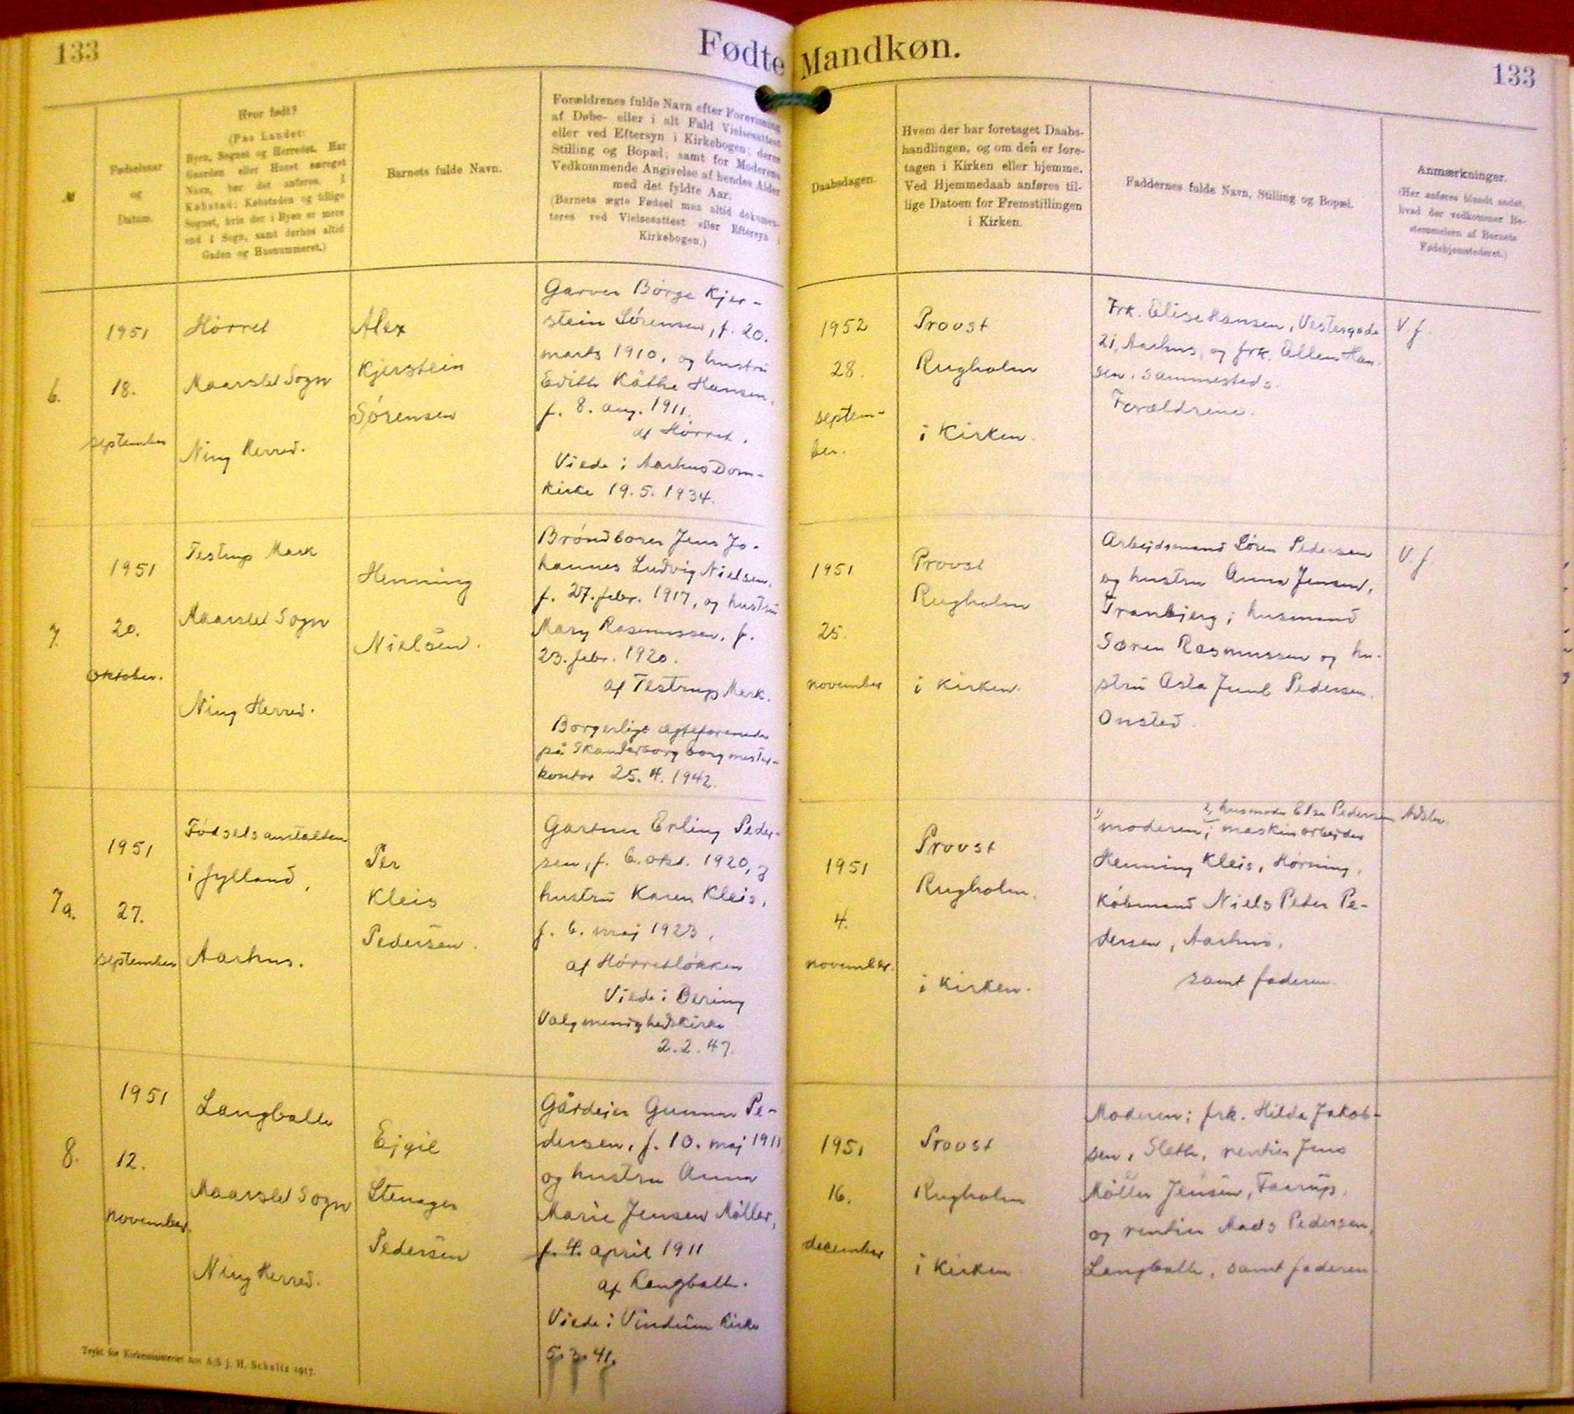 133
Fødte
Mandkøn.
133
№
Fødselsaar
og
Datum.
Hvor født?
(Paa Landet:
Byen, Sognet og Herredet. Har
Gaarden eller Huset særeget
Navn, bør det anføres. I
Købstad: Købstaden og tillige
Sognet, hvis der i Byen er mere
end 1 Sogn, samt derhos altid
Gaden og Husnummeret.)
Barnets fulde Navn.
Forældrenes fulde Navn efter Forevisning
af Døbe- eller i alt Fald Vielsesattest
eller ved Eftersyn i Kirkebogen; deres
Stilling og Bopæl; samt for Moderens
Vedkommende Angivelse af hendes Alder
med det fyldte Aar.
(Barnets ægte Fødsel maa altid dokumen-
teres ved Vielsesattest eller Eftersyn i
Kirkebogen.)
Daabsdagen.
Hvem der har foretaget Daabs-
handlingen, og om den er fore-
tagen i Kirken eller hjemme.
Ved Hjemmedaab anføres til-
lige Datoen for Fremstillingen
i Kirken.
Faddernes fulde Navn, Stilling og Bopæl.
Anmærkninger.
(Her anføres blandt andet,
hvad der vedkommer Be-
stemmelsen af Barnets
Fødehjemstedsret.)
6.
1951
18.
september
Hørret
Maarslet Sogn
Ning Herred.
Alex
Kjerstein
Sørensen
Garver Børge Kjer-
stein Sørensen, f. 20.
marts 1910, og hustru
Edith Käthe Hansen,
f. 8. aug. 1911.
af Hørret.
Viede i Aarhus Dom-
kirke 19.5.1934.
1952
28.
septem-
ber.
Provst
Rugholm
i Kirken.
Frk. Elise Hansen, Vestergade
21, Aarhus, og frk. Ellen Han-
sen, sammesteds.
Forældrene.
V.f.
7.
1951
20.
oktober.
Testrup Mark
Maarslet Sogn
Ning Herred.
Henning
Nielsen.
Brøndborer Jens Jo-
hannes Ludvig Nielsen,
f. 27. febr. 1917, og hustru
Mary Rasmussen, f.
23. febr. 1920.
af Testrup Mark.
Borgerligt ægteforenede
på Skanderborg borgmester-
kontor 25.4.1942.
1951
25.
november
Provst
Rugholm
i Kirken.
Arbejdsmand Søren Pedersen
og hustru Anna Jensen,
Tranbjerg; husmand
Søren Rasmussen og hu-
stru Asta Juul Pedersen,
Onsted.
V.f.
7a.
1951
27.
september
Fødselsanstalten
i Jylland,
Aarhus.
Per
Kleis
Pedersen.
Gartner Erling Peder-
sen, f. 6. okt. 1920, og
hustru Karen Kleis,
f. 6. maj 1923,
af Hørretløkken
Viede i Bering
Valgmenighedskirke
2.2.47.
1951
4.
november.
Provst
Rugholm.
i Kirken.
husmoder Else Pedersen
moderen; maskinarbejder
Henning Kleis, Hørning,
Købmand Niels Peter Pe-
dersen, Aarhus,
samt faderen.
8.
1951
12.
november.
Langballe
Maarslet Sogn
Ning Herred.
Ejgil
Stenager
Pedersen
Gårdejer Gunnar Pe-
dersen, f. 10. maj 1911
og hustru Anna
Marie Jensen Møller,
f. 4. april 1911
af Langballe.
Viede i Vindum Kirke
5.3.41.
1951
16.
december
Provst
Rugholm
i Kirken
Moderen; frk. Hilda Jakob-
sen, Sleth, rentier Jens
Møller Jensen, Faarup,
og rentier Mads Pedersen,
Langballe, samt faderen
Trykt for Kirkeministeriet hos A/S J. H. Schultz 1917.